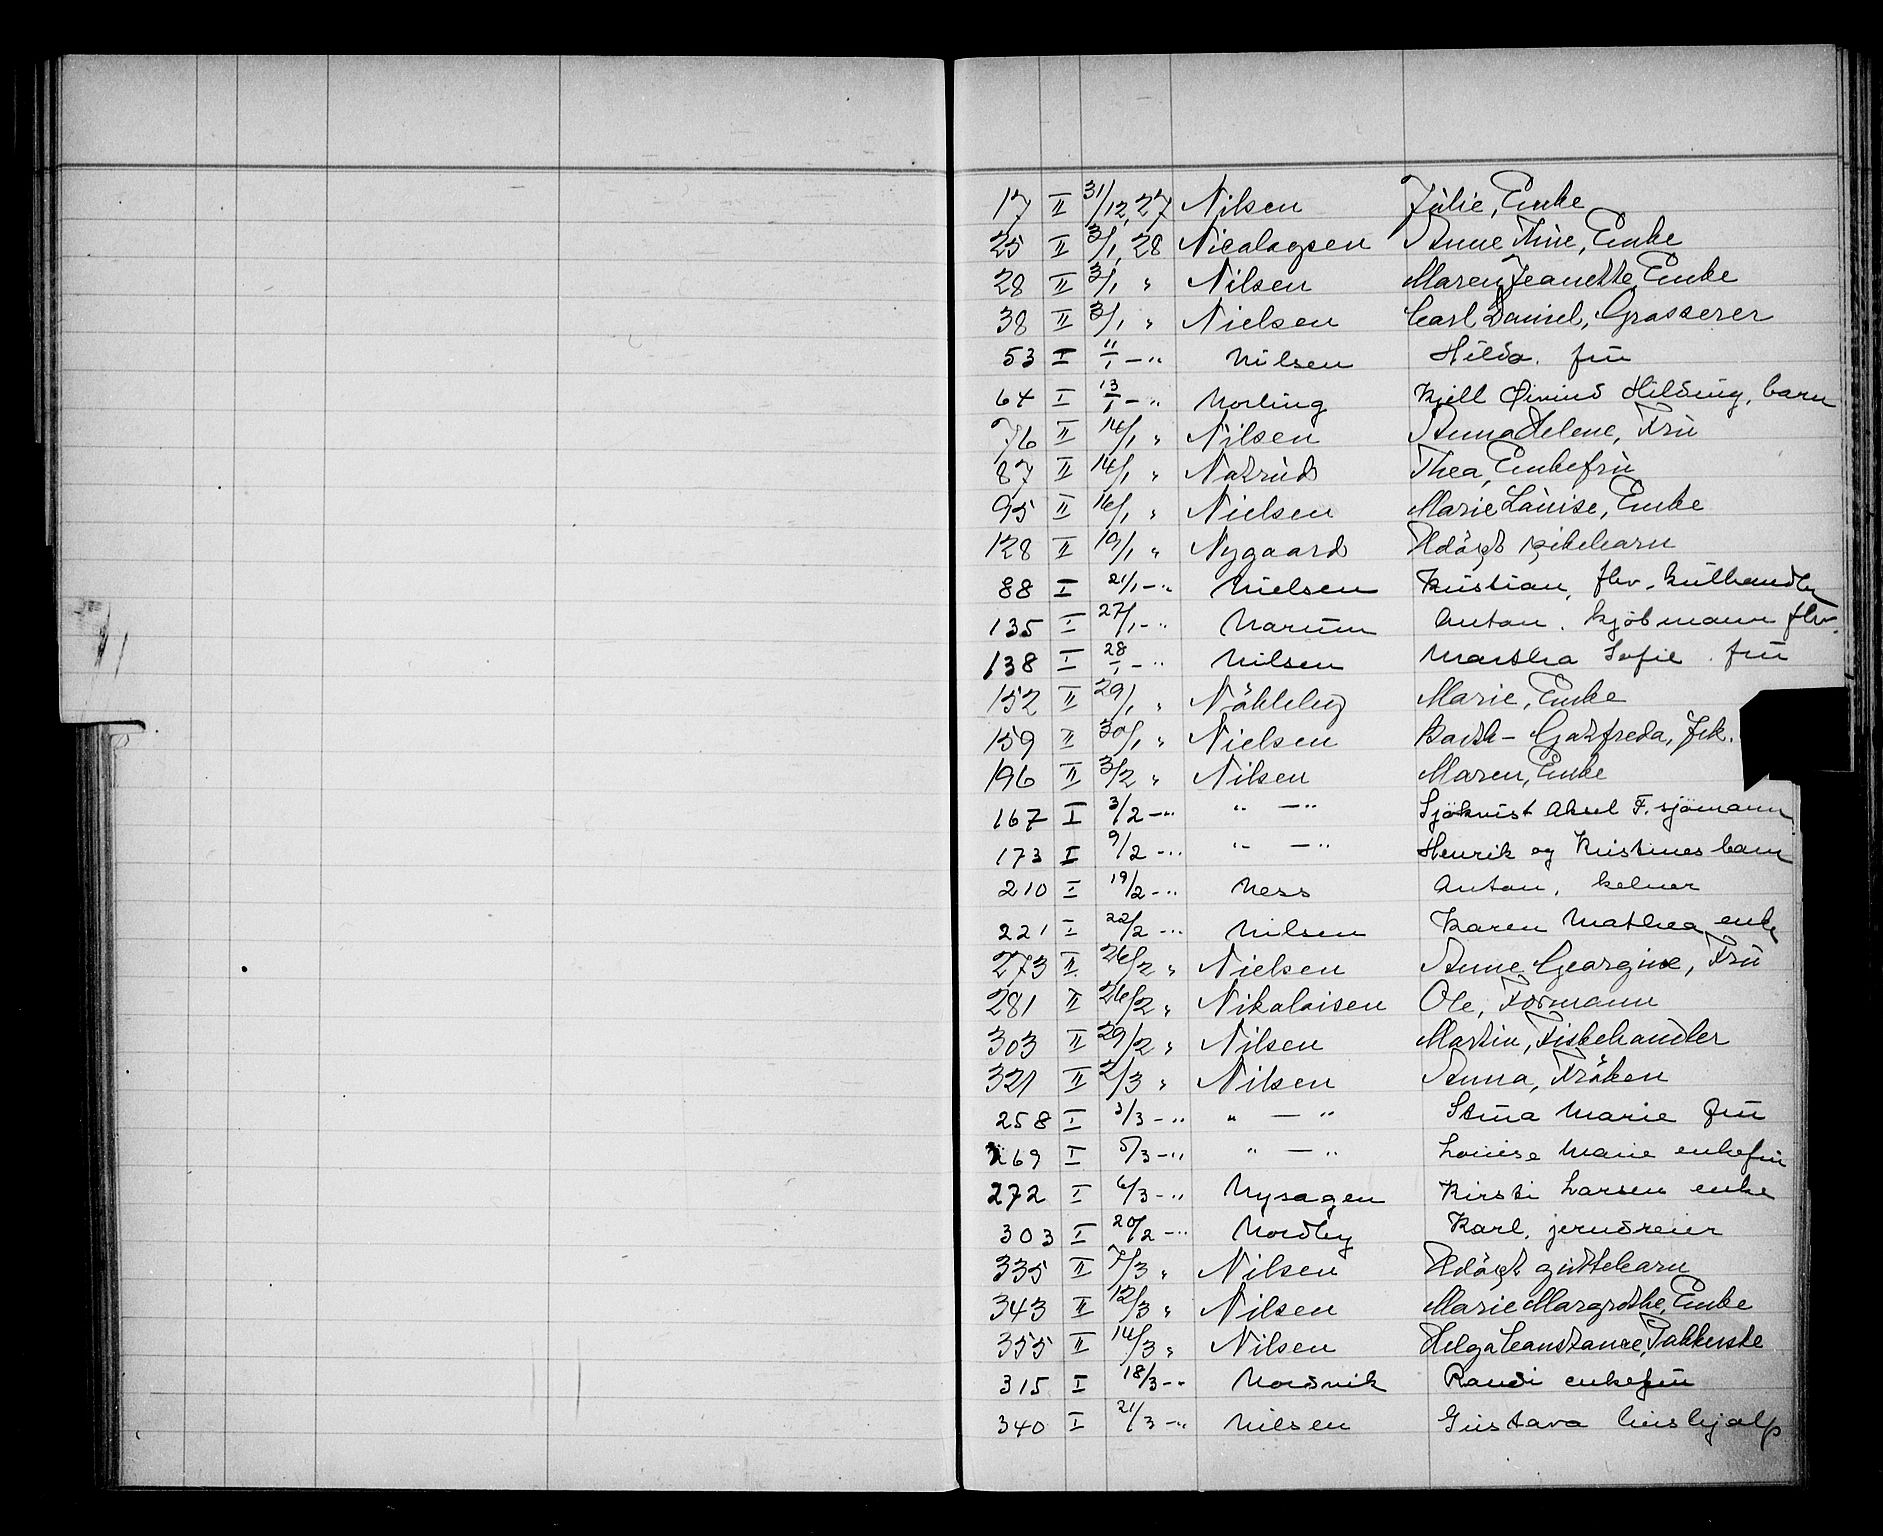 17 II 31/12, 27 Nilsen Julie, Enke
25 II 3/1, 28 Nicolaysen Anne Thrie, Enke
28 II 3/1 " Nilsen Maren Jeanette Enke
38 II 3/1 " Nielsen Carl Daniel, Grosserer
53 I 11/1 - " Nilsen Hilda. fru
64 I 13/1 - " Norling Kjell Øivind Hilding, barn
76 II 14/1 " Nilsen Anna Helene, Fru
87 II 14/1 " Natrud Thea, Enkefru
95 II 16/1 " Nielsen Marie Louise, Enke
128 II 19/1 " Nygaard Udöpt pikebarn
88 I 21/1 - " Nielsen Kristian, fhv. kulhandler
135 I 27/1 - " Narum Anton. kjöbmann fhv.
138 I 28/1 - " Nilsen Martha Sofie. fru
152 II 29/1 " Nökleby Marie, Enke
159 II 30/1 " Nielsen Gotfreda, Frk.
196 II 3/2 " Nilsen Maren, Enke
167 I 3/2 - " " - " Sjökvist Aksel F. sjömann
173 I 9/2 - " " - " Henrik og Kristines barn
210 I 19/2 - " Ness Anton. kelner
221 I 22/2 - " Nilsen Karen Mathea enke
273 II 26/2 " Nielsen Anne Georgine, Fru
281 II 26/2 " Nikolaisen Ole, Formann
303 II 29/2 " Nilsen Martin, Fiskehandler
321 II 2/3 " Nilsen Anna, Fröken
258 I 3/3 - " " - " Stina Marie fru
269 I 5/3 - " " - " Louise Marie enkefru
272 I 6/3 - " Nysagen Kirsti Larsen enke
303 I 20/2 - " Nordby Karl. jerndreier
335 II 7/3 " Nilsen Udöpt guttebarn
343 II 12/3 " Nilsen Marie Margrethe, Enke
355 II 14/3 " Nilsen Helga Constance, Pakkerske
315 I 18/3 - " Nordvik Randi enkefru
340 I 21/3 - " Nilsen Gustava hushjalp